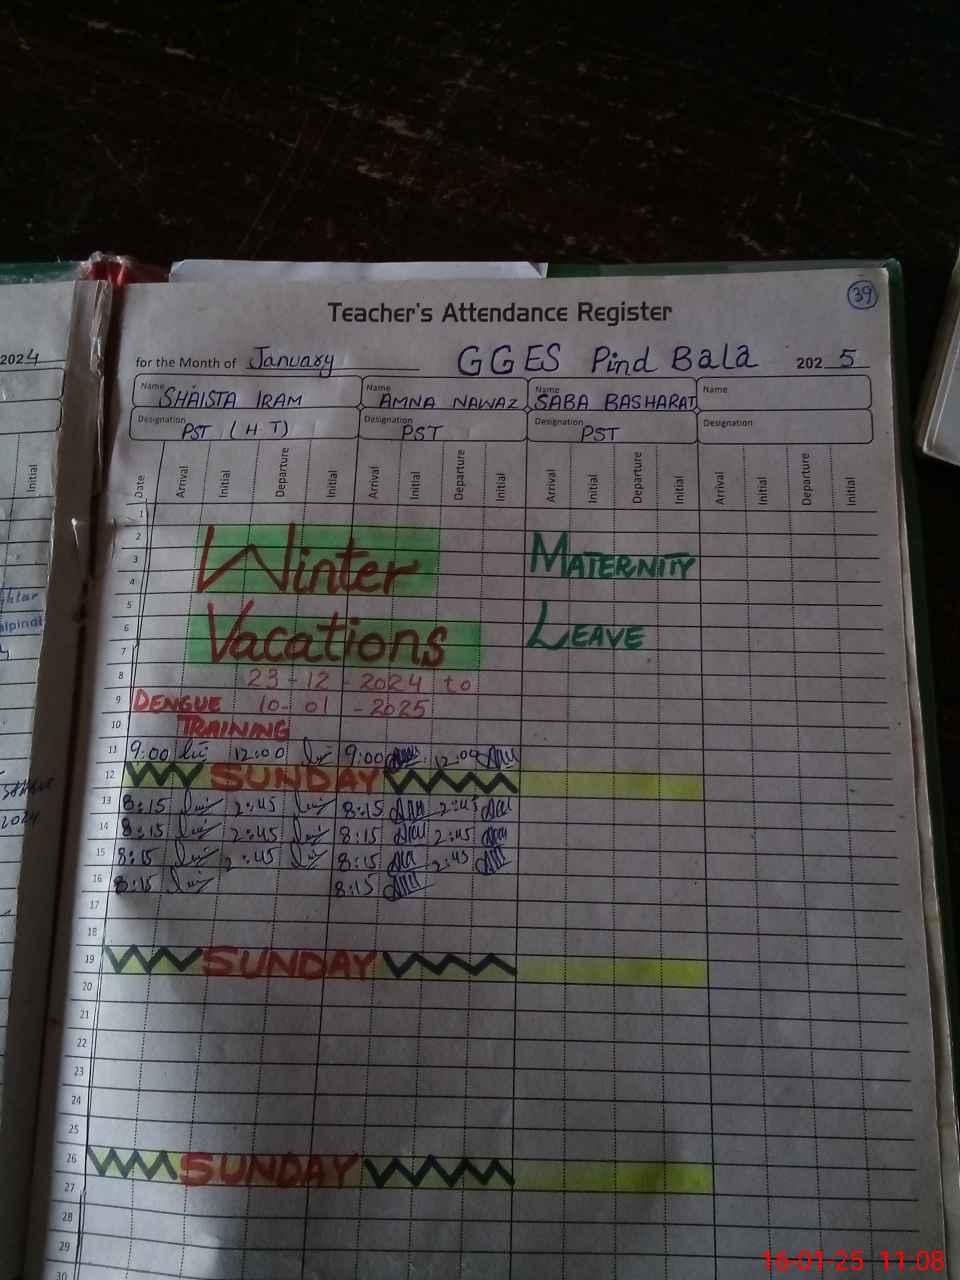 39
Teacher's Attendance Register
for the Month of January GGES Pind Bala 2025
2024
Name SHAISTA IRAM Name AMNA NAWAZ Name SABA BASHARAT Name
Designation PST (HT) Designation PST Designation PST Designation
Initial
Date Arrival Initial Departure Initial Arrival Initial Departure Initial Arrival Initial Departure Initial Arrival Initial Departure Initial
1
2
3
4
Winter MATERNITY
5
6
7
Vacations LEAVE
8 23-12-2024 to
9 DENGUE 10-01-2025
10 TRAINING
11 9:00 12:00 9:00 12:00
12 SUNDAY
13 8:15 2:45 8:15 2:45
14 8:15 2:45 8:15 2:45
15 8:15 2:45 8:15 2:45
16 8:15 8:15
17
18
19 SUNDAY
20
21
22
23
24
25
26 SUNDAY
27
28
29
30
2024
16-01-25 11:08